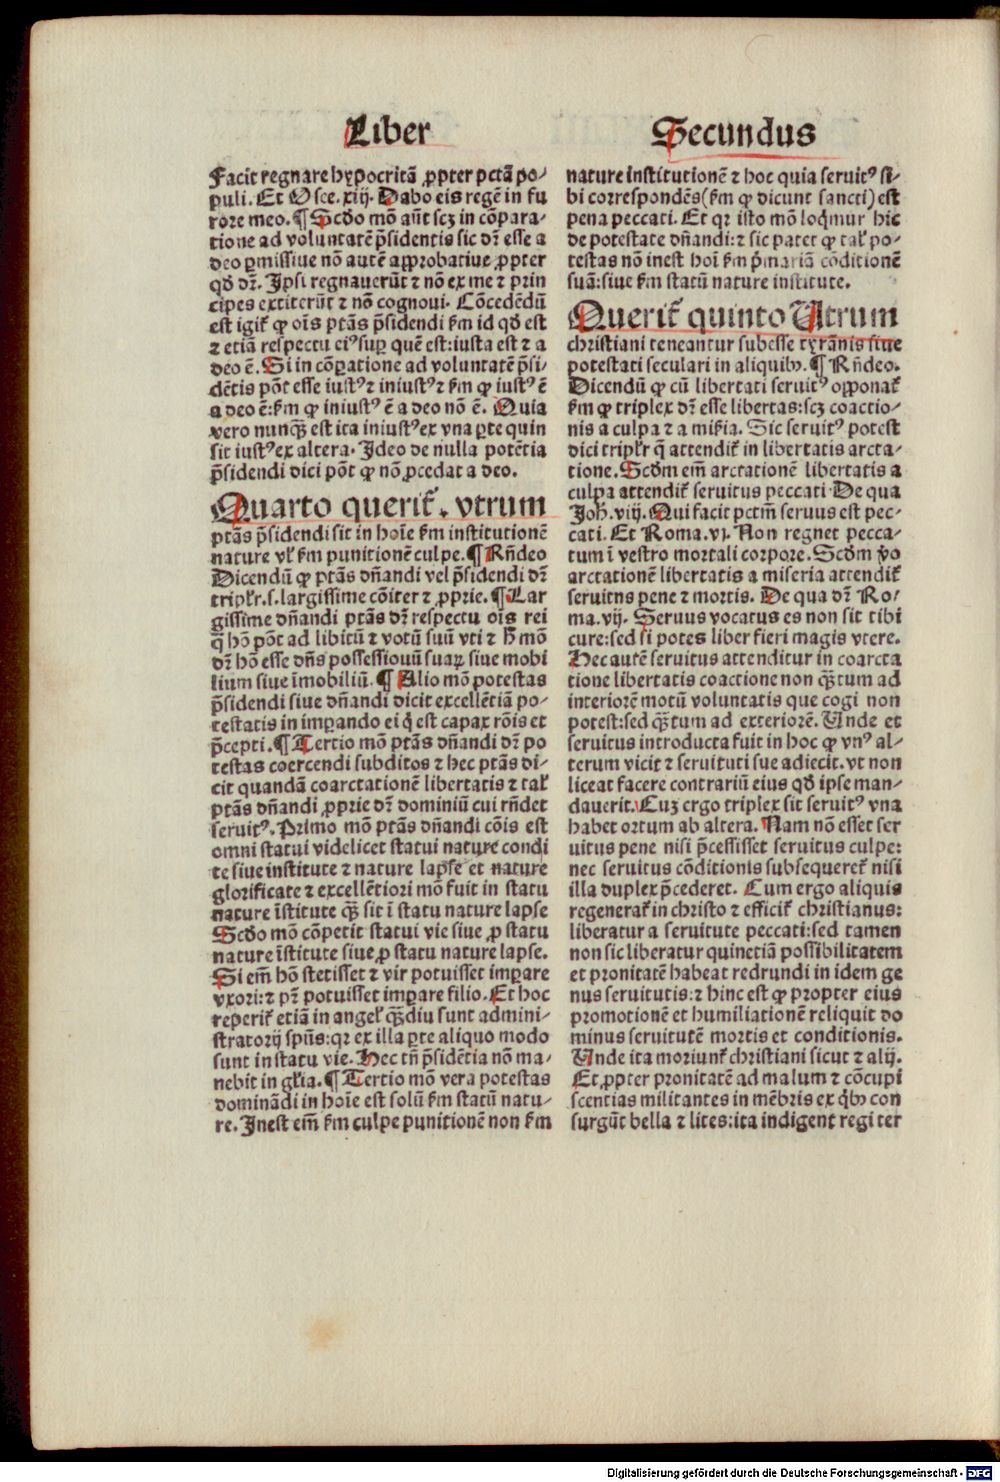 Liber
Secundus
Facit regnare hypocritā ꝓpter pctā po⸗
puli. Et Osce. xiij. Dabo eis regē in fu
rore meo. ¶ Scdo mō aūt scꝫ in cōpara⸗
tione ad voluntatē p̄sidentis sic dr̄ esse a
deo ꝑmissiue nō autē approbatiue ꝓpter
qd̄ dr̄. Ipsi regnauerūt ⁊ nō ex me ⁊ prin
cipes extiterūt ⁊ nō cognoui. Cōcedēdū
est igit̄ ꝙ oīs ptās p̄sidendi fm id qd̄ est
⁊ etiā respectu eiꝰ suꝑ quē est: iusta est ⁊ a
deo ē. Si in cōꝑatione ad voluntatē p̄si⸗
dētis pōt esse iustꝰ ⁊ iniustꝰ ⁊ fm ꝙ iustꝰ ē
a deo ē: fm ꝙ iniustꝰ ē a deo nō ē. Quia
vero nunqꝫ est ita iniustꝰ ex vna ꝑte quin
sit iustꝰ ex altera. Ideo de nulla potētia
p̄sidendi dici pōt ꝙ nō ꝓcedat a deo.
Quarto querit̄. vtrum
ptās p̄sidendi sit in hoīe fm institutionē
nature vl̄ fm punitionē culpe. ¶ Rn̄deo
Dicendū ꝙ ptās dn̄andi vel p̄sidendi dr̄
tripl̄r. s. largissime cōiter ⁊ ꝓprie. ¶ Lar
gissime dn̄andi ptās dr̄ respectu oīs rei
q̄ hō pōt ad libitū ⁊ votū suū vti ⁊ h̄ mō
dr̄ hō esse dn̄s possessiouū suaꝝ siue mobi
lium siue īmobiliū. ¶ Alio mō potestas
p̄sidendi siue dn̄andi dicit excellētiā po⸗
testatis in imꝑando ei q̄ est capax rōis et
p̄cepti. ¶ Tertio mō ptās dn̄andi dr̄ po
testas coercendi subditos ⁊ hec ptās di⸗
cit quandā coarctationē libertatis ⁊ tal̄
ptās dn̄andi ꝓprie dr̄ dominiū cui rn̄det
seruitꝰ. Primo mō ptās dn̄andi cōis est
omni statui videlicet statui nature condi
te siue institute ⁊ nature lapse et nature
glorificate ⁊ excellētiori mō fuit in statu
nature īstitute qꝫ sit ī statu nature lapse
Scdo mō cōpetit statui vie siue ꝓ statu
nature īstitute siue ꝓ statu nature lapse.
Si em̄ hō stetisset ⁊ vir potuisset imꝑare
vxori: ⁊ pr̄ potuisset imꝑare filio. Et hoc
reperit̄ etiā in angel̄ qꝫdiu sunt admini⸗
stratorij spūs: qꝛ ex illa ꝑte aliquo modo
sunt in statu vie. Hec tn̄ p̄sidētia nō ma⸗
nebit in gl̄ia. ¶ Tertio mō vera potestas
domināndi in hoīe est solū fm statū natu⸗
re. Inest em̄ fm culpe punitionē non fm
nature institutionē ⁊ hoc quia seruitꝰ si⸗
bi correspondēs (fm ꝙ dicunt sancti) est
pena peccati. Et qꝛ isto mō loqͥmur hic
de potestate dn̄andi: ⁊ sic patet ꝙ tal̄ po⸗
testas nō inest hoī fm p̄mariā cōditionē
suā: siue fm statū nature institute.
Querit̄ quinto Vtrum
christiani teneantur subesse tyrānis siue
potestati seculari in aliquibꝰ. ¶ Rn̄deo.
Dicendū ꝙ cū libertati seruitꝰ opponat̄
fm ꝙ triplex dr̄ esse libertas: scꝫ coactio⸗
nis a culpa ⁊ a miß̄ia. Sic seruitꝰ potest
dici tripl̄r q̄ attendit̄ in libertatis arcta⸗
tione. Scdm em̄ arctationē libertatis a
culpa attendit̄ seruitus peccati. De qua
Joh̄. viij. Qui facit pctm̄ seruus est pec⸗
cati. Et Roma. vj. Non regnet pecca⸗
tum ī vestro mortali corpore. Scdm v̄o
arctationē libertatis a miseria attendit̄
seruitns pene ⁊ mortis. De qua dr̄ Ro⸗
ma. vij. Seruus vocatus es non sit tibi
cure: sed si potes liber fieri magis vtere.
Hec autē seruitus attenditur in coarcta
tione libertatis coactione non qꝫtum ad
interiorē motū voluntatis que cogi non
potest: sed qꝫtum ad exteriorē. Unde et
seruitus introducta fuit in hoc ꝙ vnꝰ al⸗
terum vicit ⁊ seruituti sue adiecit. vt non
liceat facere contrariū eius qd̄ ipse man⸗
dauerit. Cuꝫ ergo triplex sit seruitꝰ vna
habet ortum ab altera. Nam nō esset ser
uitus pene nisi p̄cessisset seruitus culpe:
nec seruitus cōditionis subsequeret̄ nisi
illa duplex p̄cederet. Cum ergo aliquis
regenerat̄ in christo ⁊ efficit̄ christianus:
liberatur a seruitute peccati: sed tamen
non sic liberatur quinetiā possibilitatem
et pronitatē habeat redrundi in idem ge
nus seruitutis: ⁊ hinc est ꝙ propter eius
promotionē et humiliationē reliquit do
minus seruitutē mortis et conditionis.
Unde ita moriunt̄ christiani sicut ⁊ alij.
Et ꝓpter pronitatē ad malum ⁊ cōcupi
scentias militantes in mēbris ex qͥbꝰ con
surgūt bella ⁊ lites: ita indigent regi ter
Digitalisierung gefördert durch die Deutsche Forschungsgemeinschaft - DFG